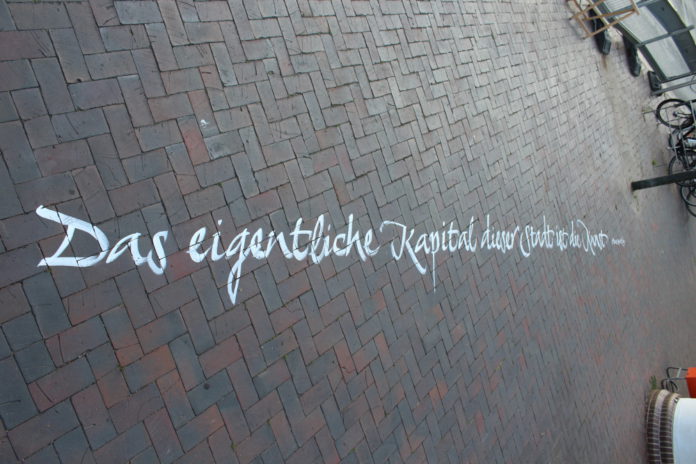 Das eigentliche Kapital dieser Stadt ist die Kunst